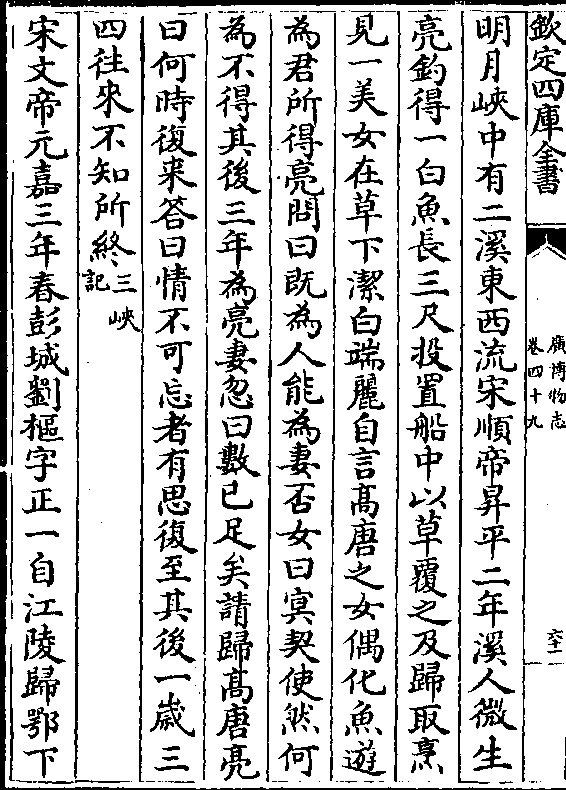 欽定四庫全書
廣博物志
卷四十九
六十二
明月峽中有二溪東西流宋順帝昇平二年溪人微生
亮釣得一白魚長三尺投置船中以草覆之及歸取烹
見一美女在草下潔白端麗自言髙唐之女偶化魚遊
為君所得亮問曰既為人能為妻否女曰㝠契使然何
為不得其後三年為亮妻忽曰數已足矣請歸髙唐亮
曰何時復来答曰情不可忘者有思復至其後一歲三
四往來不知所終三峽記
宋文帝元嘉三年春彭城劉樞字正一自江陵歸鄂下